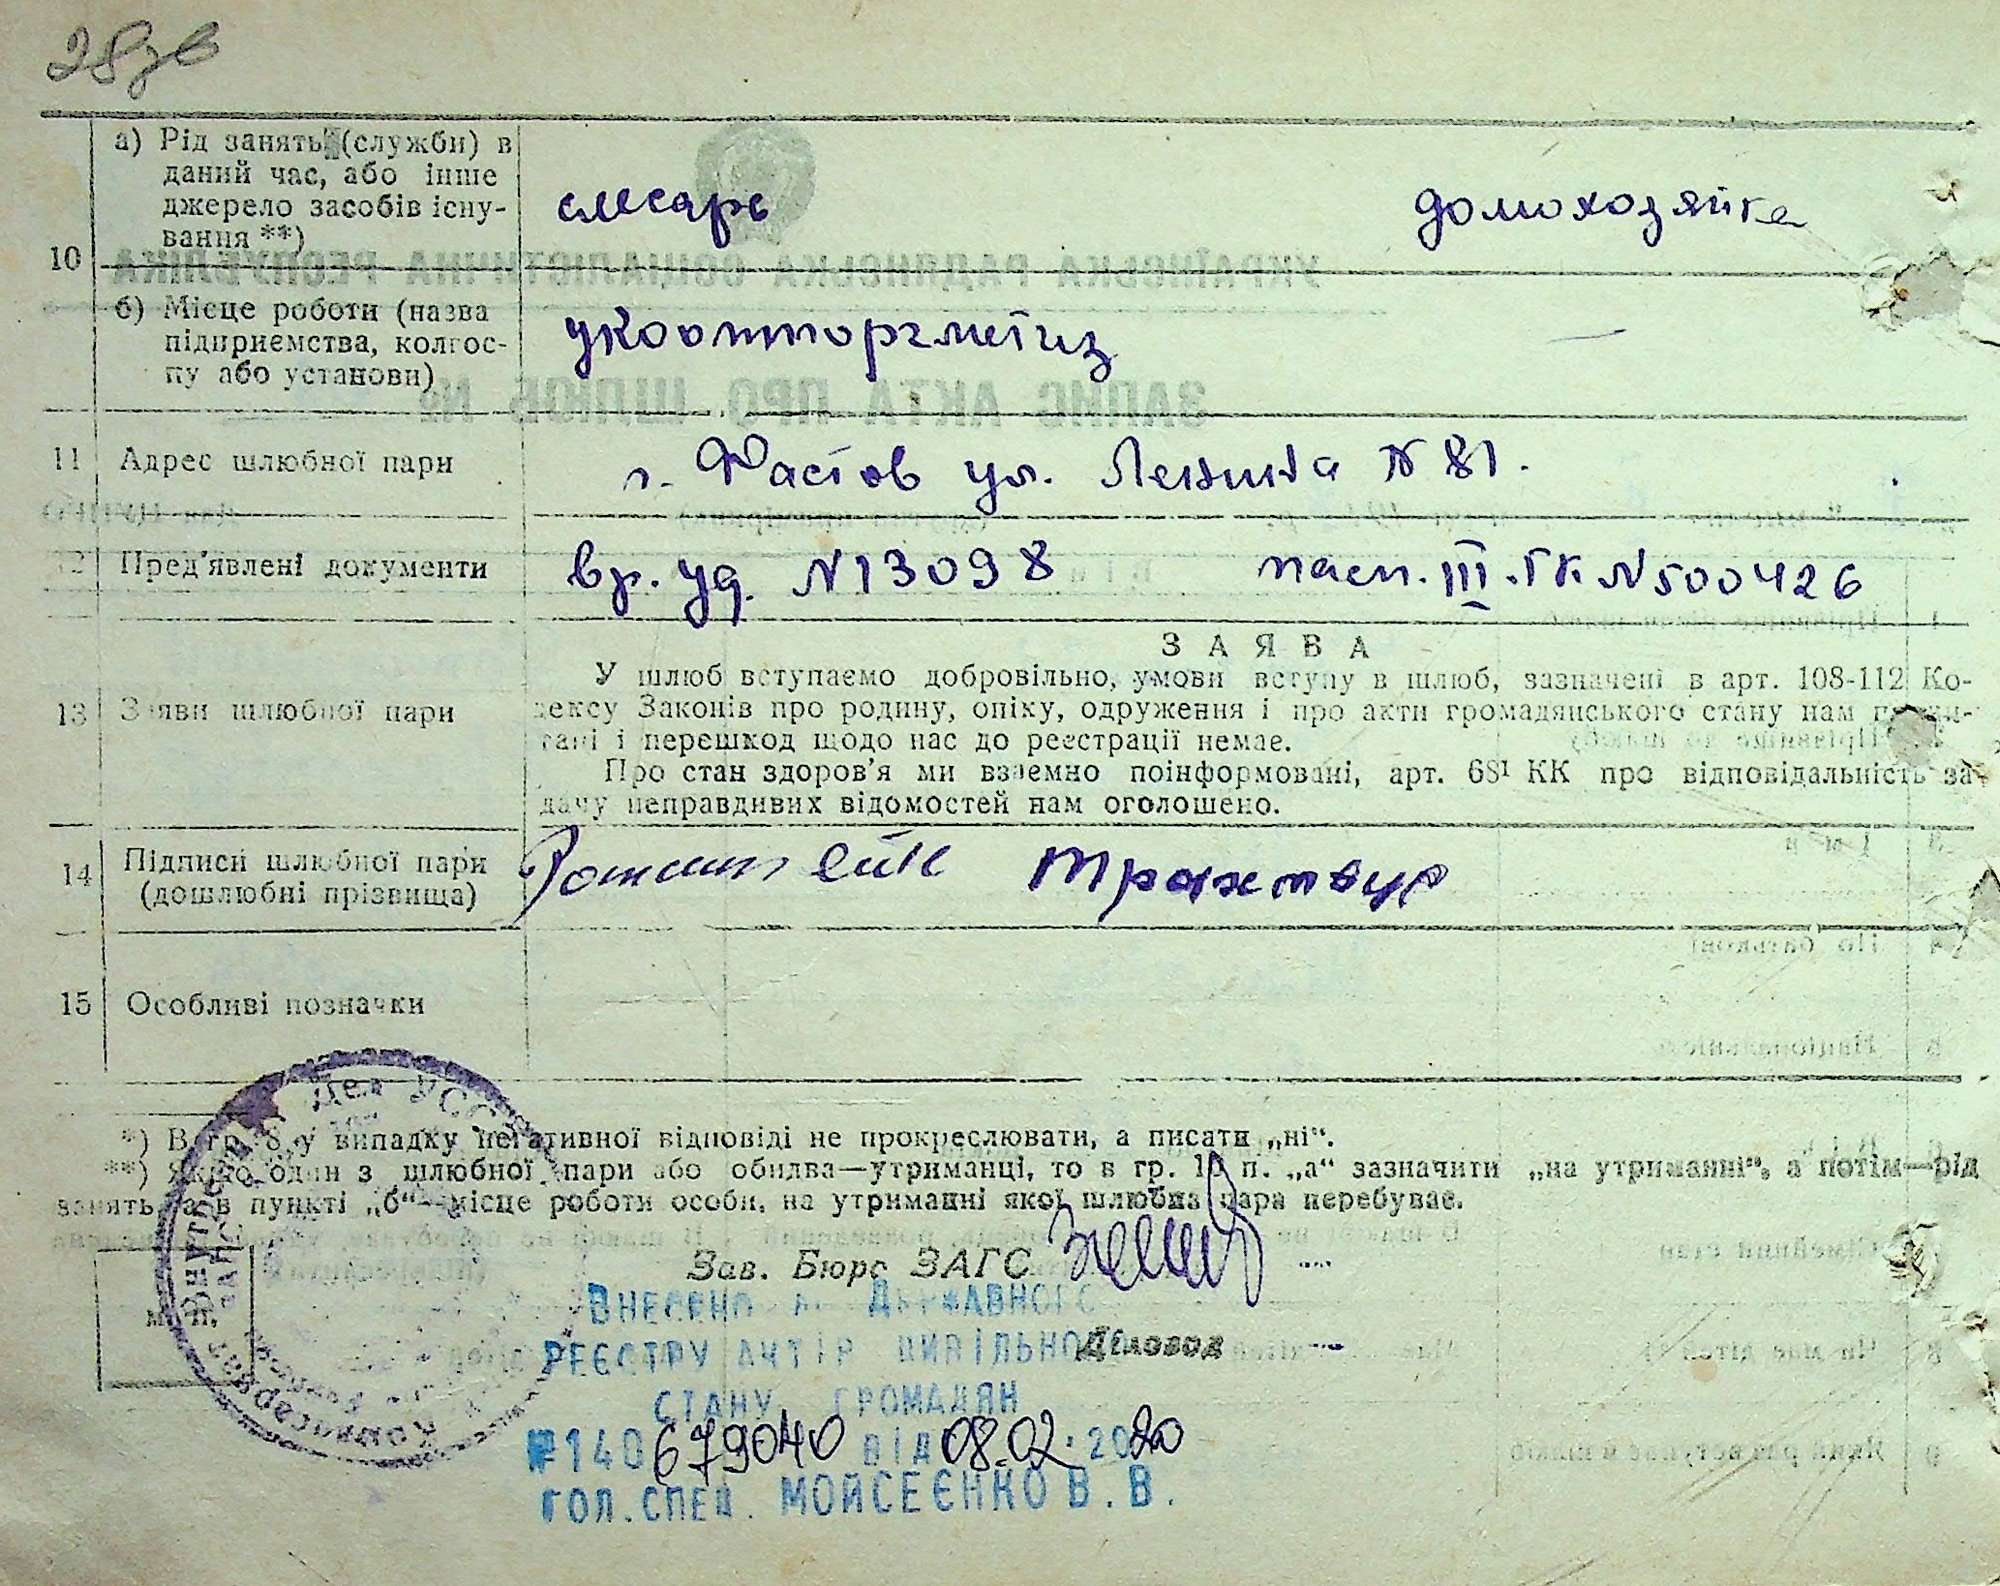 28зв
10
а) Рід занять (служби) в
даний час, або інше
джерело засобів існу-
вання **)
слесарь
домохозяйка
б) Місце роботи (назва
підприємства, колгос-
пу або установи)
11 Адрес шлюбної пари
г. Фастов ул. Ленина № 81.
12 Пред'явлені документи
вр. уд. №13098
пасп. III. ГК №500426
13 Заяви шлюбної пари
ЗАЯВА
У шлюб вступаємо добровільно, умови вступу в шлюб, зазначені в арт. 108-112 Ко-
дексу Законів про родину, опіку, одруження і про акти громадянського стану нам прочи-
тані і перешкод щодо нас до реєстрації немає.
Про стан здоров'я ми взаємно поінформовані, арт. 68¹ КК про відповідальність за
дачу неправдивих відомостей нам оголошено.
14 Підписи шлюбної пари
(дошлюбні прізвища)
15 Особливі позначки
*) В гр. 8 у випадку негативної відповіді не прокреслювати, а писати „ні“.
**) Якщо один з шлюбної пари або обидва—утриманці, то в гр. 10 п. „а“ зазначити „на утриманні“, а потім—рід
занять, а в пункті „б“—місце роботи особи, на утриманні якої шлюбна пара перебуває.
Зав. Бюро ЗАГС
м. п.
Діловод
ВНЕСЕНО ДО ДЕРЖАВНОГО
РЕЄСТРУ АКТІВ ЦИВІЛЬНОГО
СТАНУ ГРОМАДЯН
№140679040 від 08.02.2020
ГОЛ.СПЕЦ. МОЙСЕЄНКО В.В.